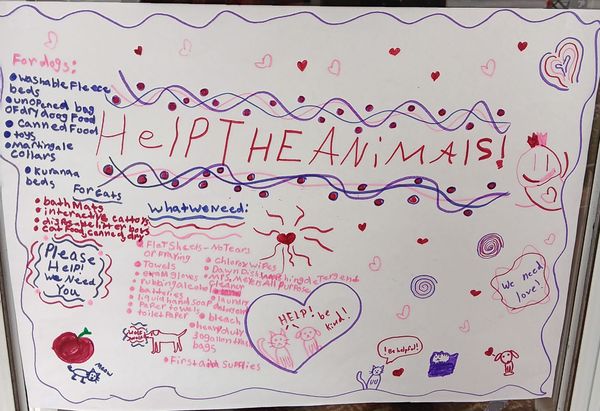 For dogs:
washable Fleece
beds
unopened bag
of dry doog Food
canned Food
toys
martingale
collars
Kuranda
beds
HelP THE ANiMAlS!
For Cats
bath Mats
interactive cat toys
Cat Food, canned, dry
What we Need:
Flat Sheets - No Tears
or Fraying
Towels
exam gloves
rubbing alcohol
batteries
liquid hand soap
Paper towels
toilet Paper
chlorox wipes
Dawn Dish washing detergend
Mrs. Meyers All Purpose
Cleaner
laundry
bleach
heavy duty
30 gallon trash
bags
First aid supplies
Please
HelP!
we Need
You
HELP! be
kind!
We need
love!
! Be helpful!
meow
woof